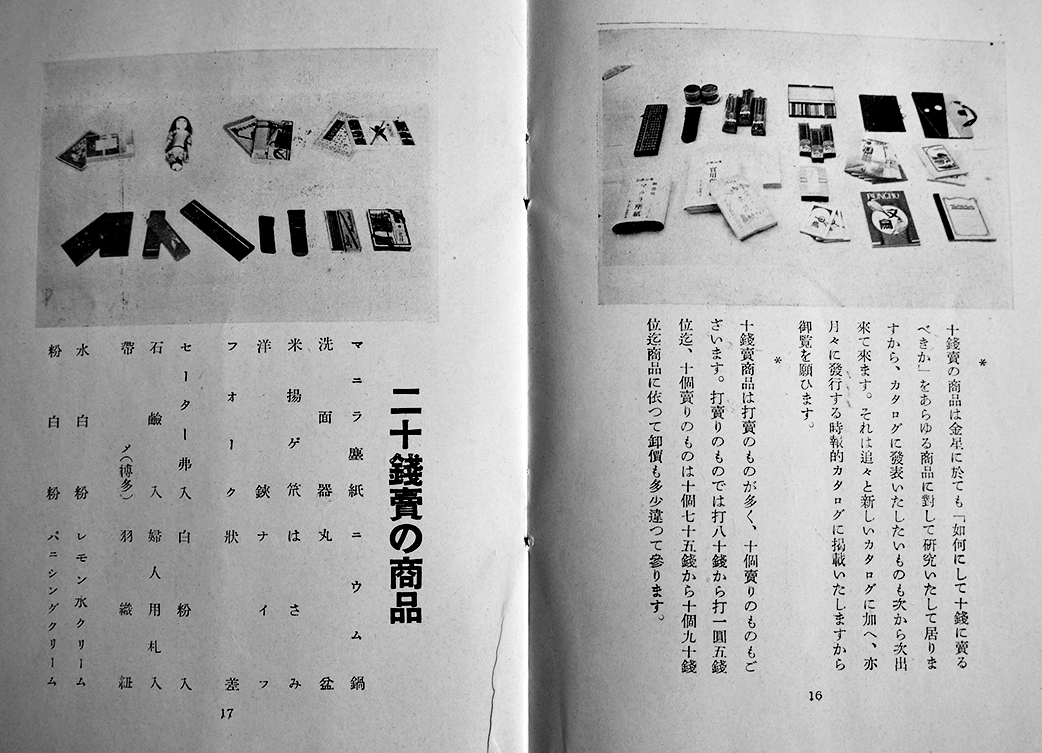 *
十錢賣の商品は金星に於ても「如何にして十錢に賣る
べきか」をあらゆる商品に對して研究いたして居りま
すから、カタログに發表いたしたいものも次から次出
來て來ます。それは追々と新しいカタログに加へ、亦
月々に發行する時報的カタログに掲載いたしますから
御覧を願ひます。
*
十錢賣商品は打賣のものが多く、十個賣りのものもご
ざいます。打賣りのものでは打八十錢から打一圓五錢
位迄、十個賣りのものは十個七十五錢から十個九十錢
位迄商品に依つて卸價も多少違つて參ります。
16
二十錢賣の商品
マニラ塵紙 ニウム鍋
洗面器 丸盆
米揚ゲ笊 はさみ
洋鋏 ナイフ
フォーク 狀差
セーター弗入 白粉入
石鹼入 婦人用札入
帶〆(博多) 羽織紐
水白粉 レモン水クリーム
粉白粉 バニシングクリーム
17